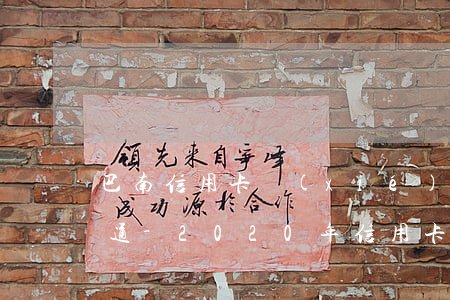 領先來自爭峰
巴南信用卡
成功源於合作
通-2020年信用卡